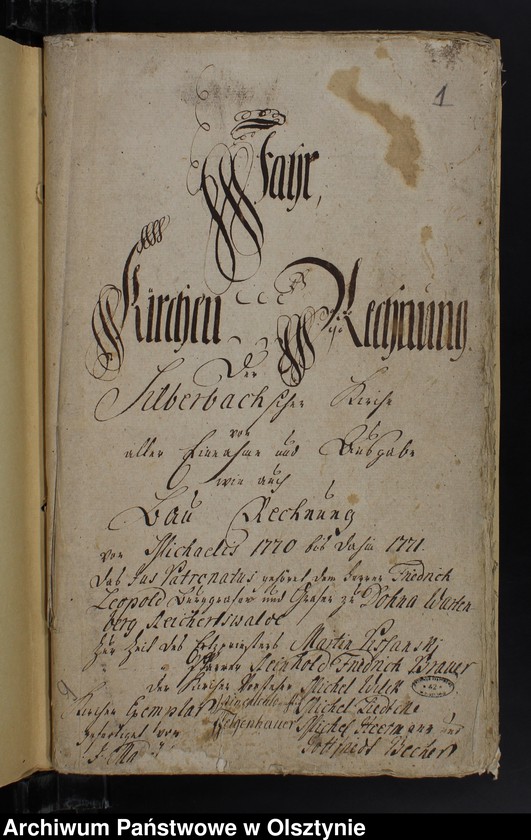 1
Jahr,
Kirchen Rechnung
Der
Silberbachschen Kirche
von
aller Einnahme und Ausgabe
wie auch
Bau Rechnung
von Michaelis 1770 bis dahin 1771.
Das Jus Patronatus gehöret dem Herrn Friedrich
Leopold Burggrafen und Grafen zu Dohna Warten
berg Reichertswalde
Zur Zeit des Erzpriesters Martin
Pfarrer Reinhold Friedrich Brauer
der Kirchen Vorsteher Michel Wilck
Kirchen Exemplar Michel
gefertiget von Michel Heermann und
Gottfriedt Becker
Archiwum Państwowe w Olsztynie